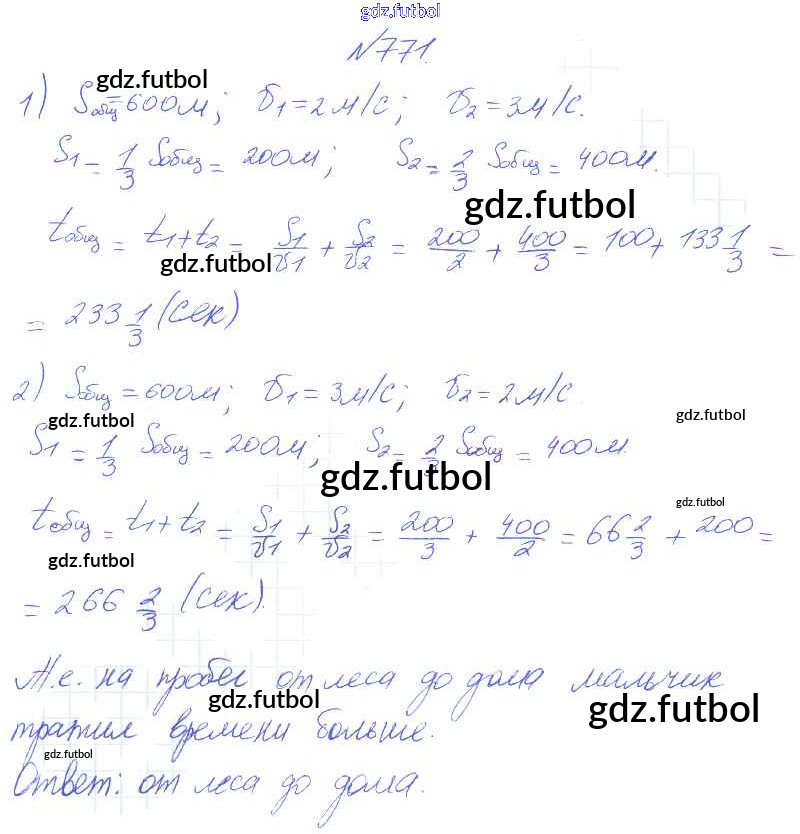 gdz.futbol
N771.
gdz.futbol
1) Sобщ=600м; υ1=2м/с; υ2=3м/с.
S1=1/3 Sобщ=200м; S2=2/3 Sобщ=400м.
gdz.futbol
tобщ=t1+t2=S1/υ1+S2/υ2=200/2+400/3=100+133 1/3=
gdz.futbol
=233 1/3 (сек)
2) Sобщ=600м; υ1=3м/с; υ2=2м/с.
gdz.futbol
gdz.futbol
S1=1/3 Sобщ=200м; S2=2/3 Sобщ=400м.
gdz.futbol
gdz.futbol
tобщ=t1+t2=S1/υ1+S2/υ2=200/3+400/2=66 2/3+200=
gdz.futbol
=266 2/3 (сек).
Т.е. на пробег от леса до дома мальчик
gdz.futbol
gdz.futbol
тратил времени больше.
gdz.futbol
Ответ: от леса до дома.